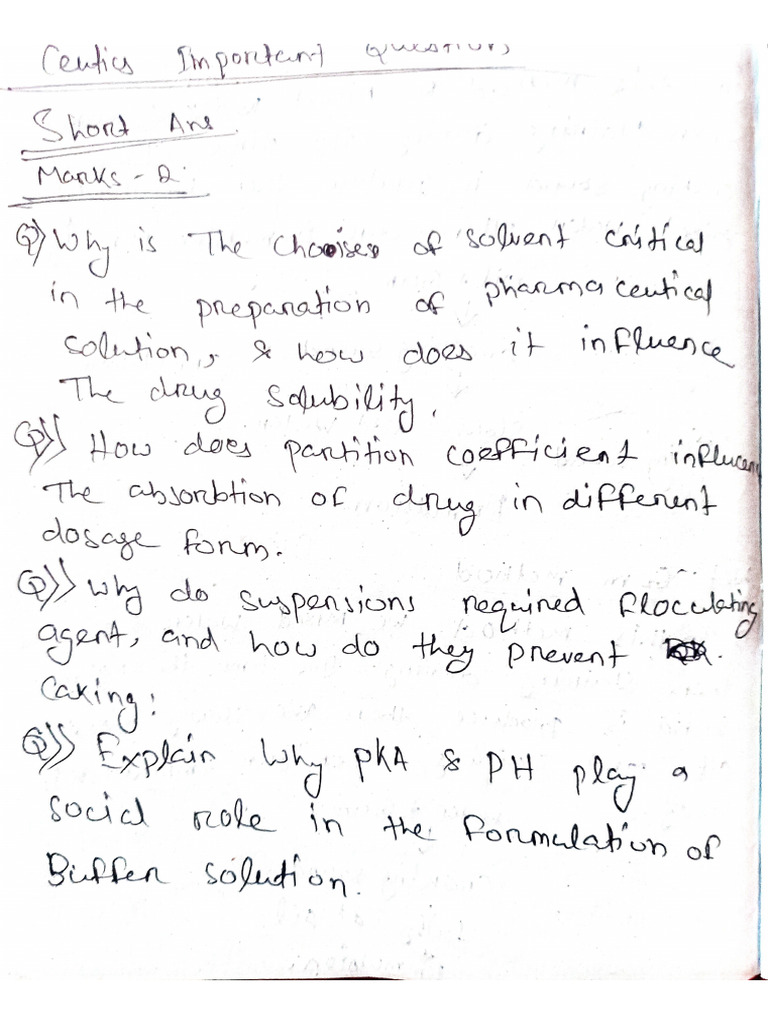 Ceutics Important Questions
Short Ans.
Marks - 2.
Q) Why is The Choises of solvent critical
in the preparation of pharmaceutical
solution, & how does it influence
The drug solubility.
Q)) How does partition coefficient influence
The absorbtion of drug in different
dosage form.
Q)) Why do suspensions required floculating
agent, and how do they prevent
Caking.
Q)) Explain Why pKA & PH play a
social role in the formulation of
Buffer solution.